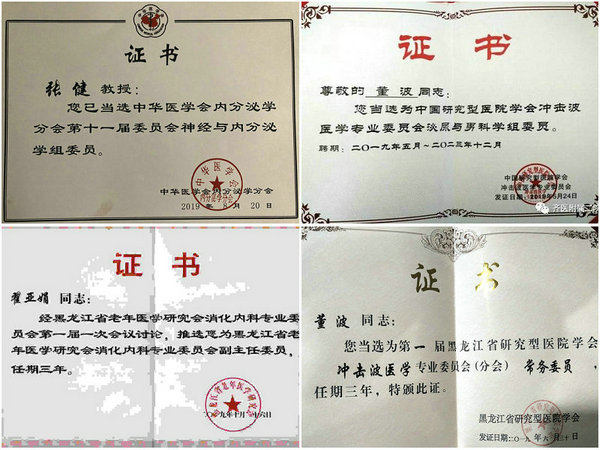 证书
张健 教授:
您已当选中华医学会内分泌学
分会第十一届委员会神经与内分泌
学组委员。
中华医学会内分泌学分会
2019年8月20日
证书
尊敬的 董波 同志:
您当选为中国研究型医院学会冲击波
医学专业委员会泌尿与男科学组委员。
聘期:二〇一九年五月~二〇二三年十二月
中国研究型医院学会
冲击波医学专业委员会
发证日期:2019年5月24日
证书
翟亚娟 同志:
经黑龙江省老年医学研究会消化内科专业委
员会第一届一次会议讨论,推选您为黑龙江省老
年医学研究会消化内科专业委员会副主任委员,
任期三年。
黑龙江省老年医学研究会
证书
董波 同志:
您当选为第一届黑龙江省研究型医院学会
冲击波医学专业委员会(分会)常务委员,
任期三年,特颁此证。
黑龙江省研究型医院学会